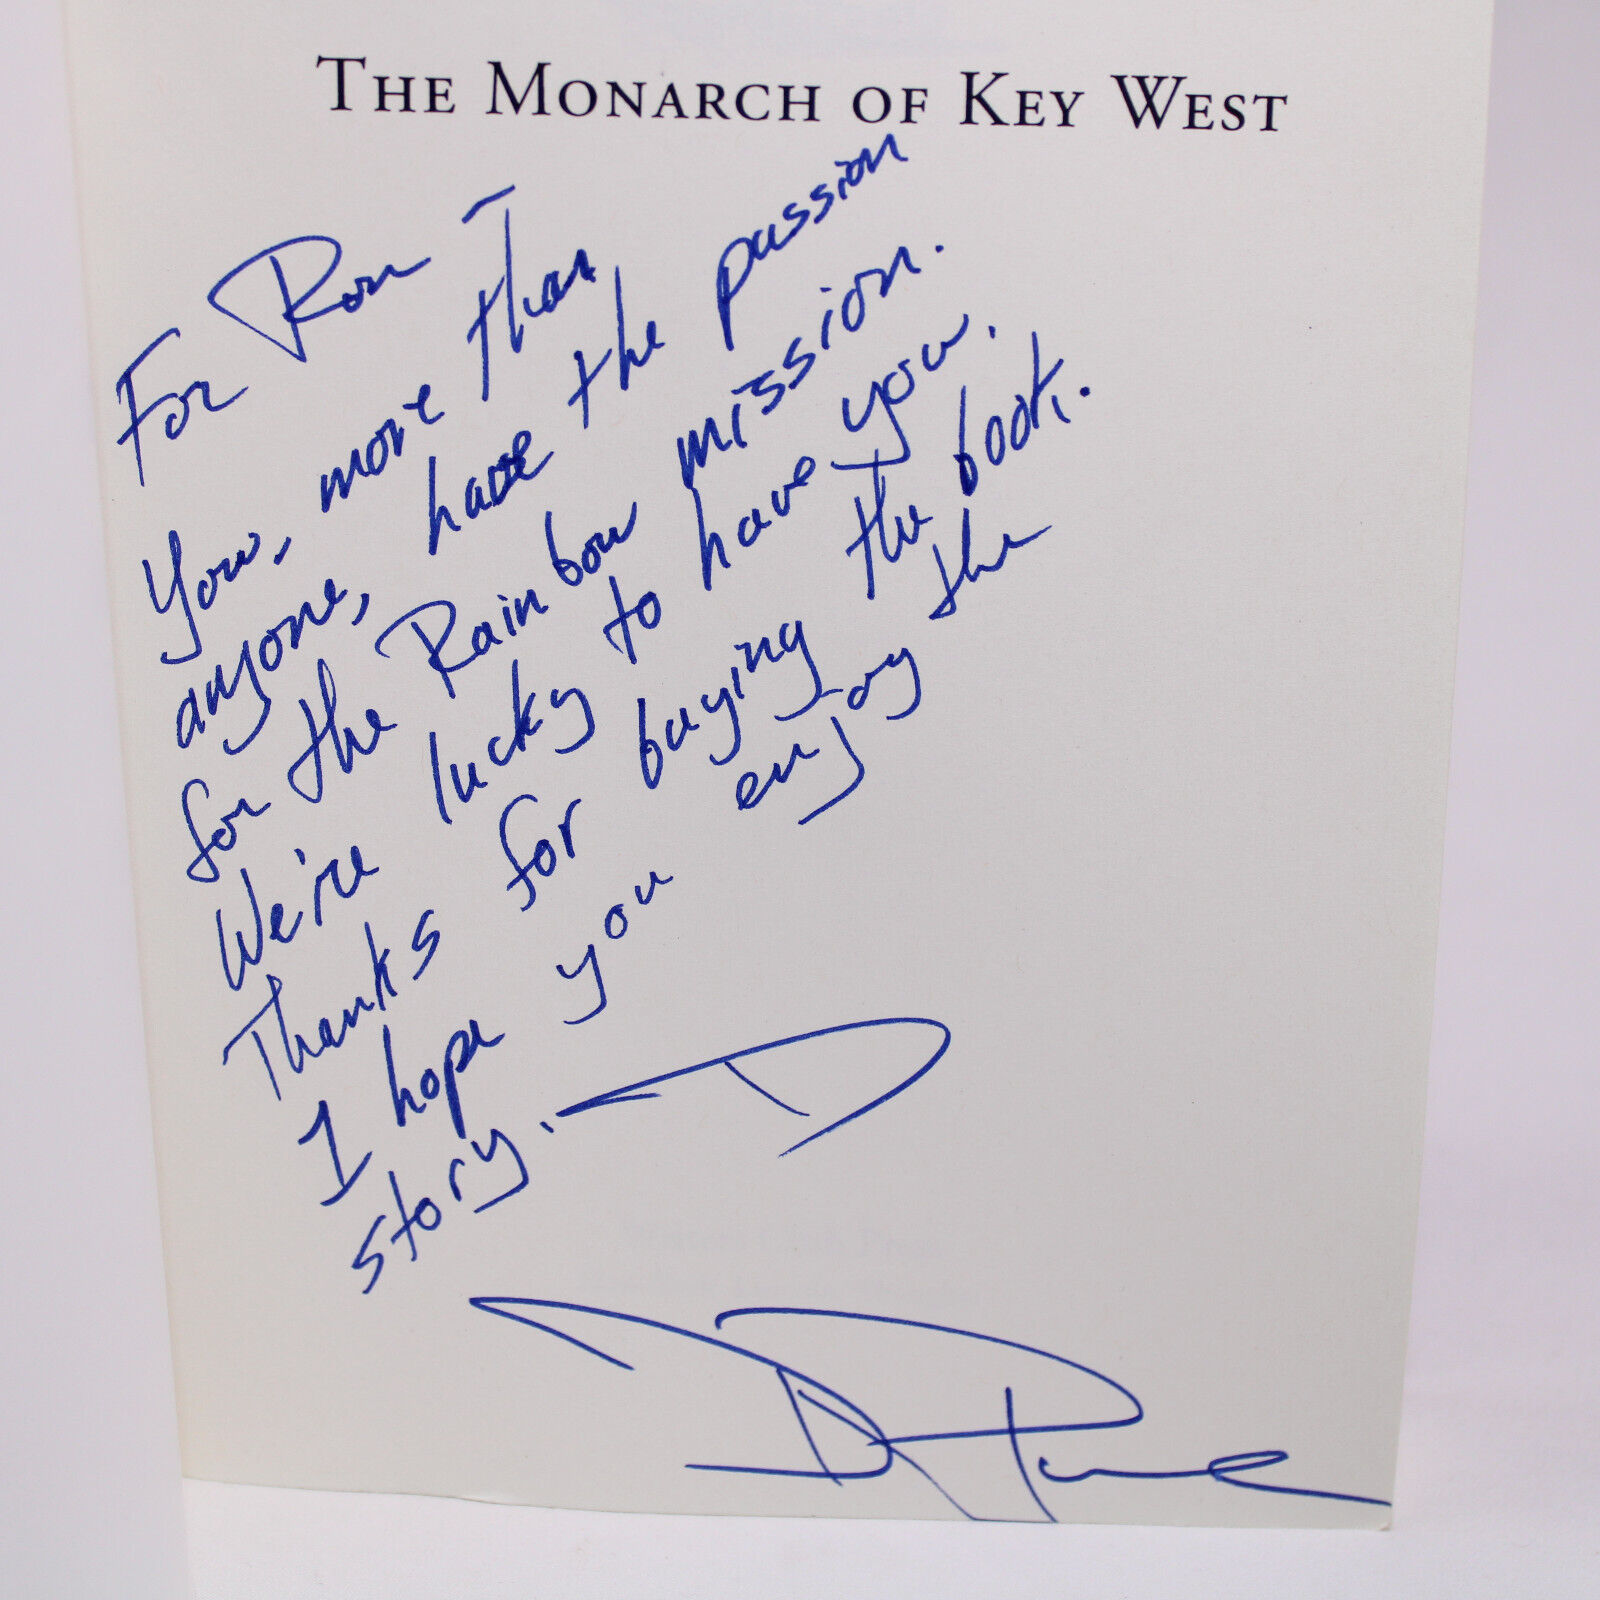 THE MONARCH OF KEY WEST
For Ron
You, more than
anyone, have the passion
for the Rainbow mission.
We're lucky to have you.
Thanks for buying the book.
I hope you enjoy the
story.